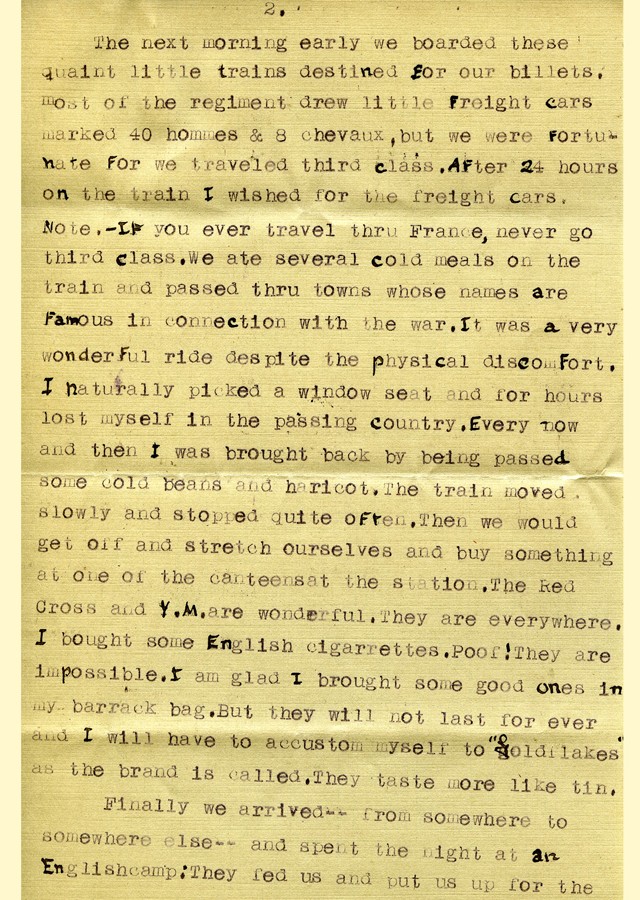 2.
The next morning early we boarded these
quaint little trains destined for our billets.
most of the regiment drew little freight cars
marked 40 hommes & 8 chevaux,but we were fortu-
nate for we traveled third class.After 24 hours
on the train I wished for the freight cars.
Note.-If you ever travel thru France,never go
third class.We ate several cold meals on the
train and passed thru towns whose names are
famous in connection with the war.It was a very
wonderful ride despite the physical discomfort.
I naturally picked a window seat and for hours
lost myself in the passing country.Every now
and then I was brought back by being passed
some cold beans and haricot.The train moved
slowly and stopped quite often.Then we would
get off and stretch ourselves and buy something
at one of the canteensat the station.The Red
Cross and Y.M.are wonderful.They are everywhere.
I bought some English cigarrettes.Poof!They are
impossible.I am glad I brought some good ones in
my barrack bag.But they will not last for ever
and I will have to accustom myself to "goldflakes"
as the brand is called.They taste more like tin.
Finally we arrived-- from somewhere to
somewhere else-- and spent the night at an
Englishcamp:They fed us and put us up for the